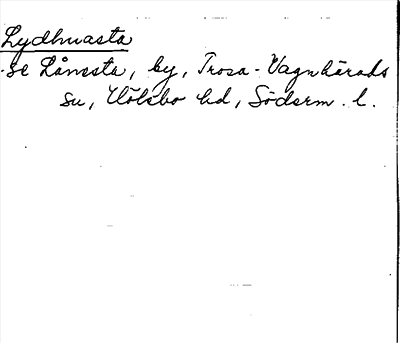 Lydhuasta
se Lånesta, by, Trosa-Vagnhärads
su, Hölebo hd, Söderm. l.